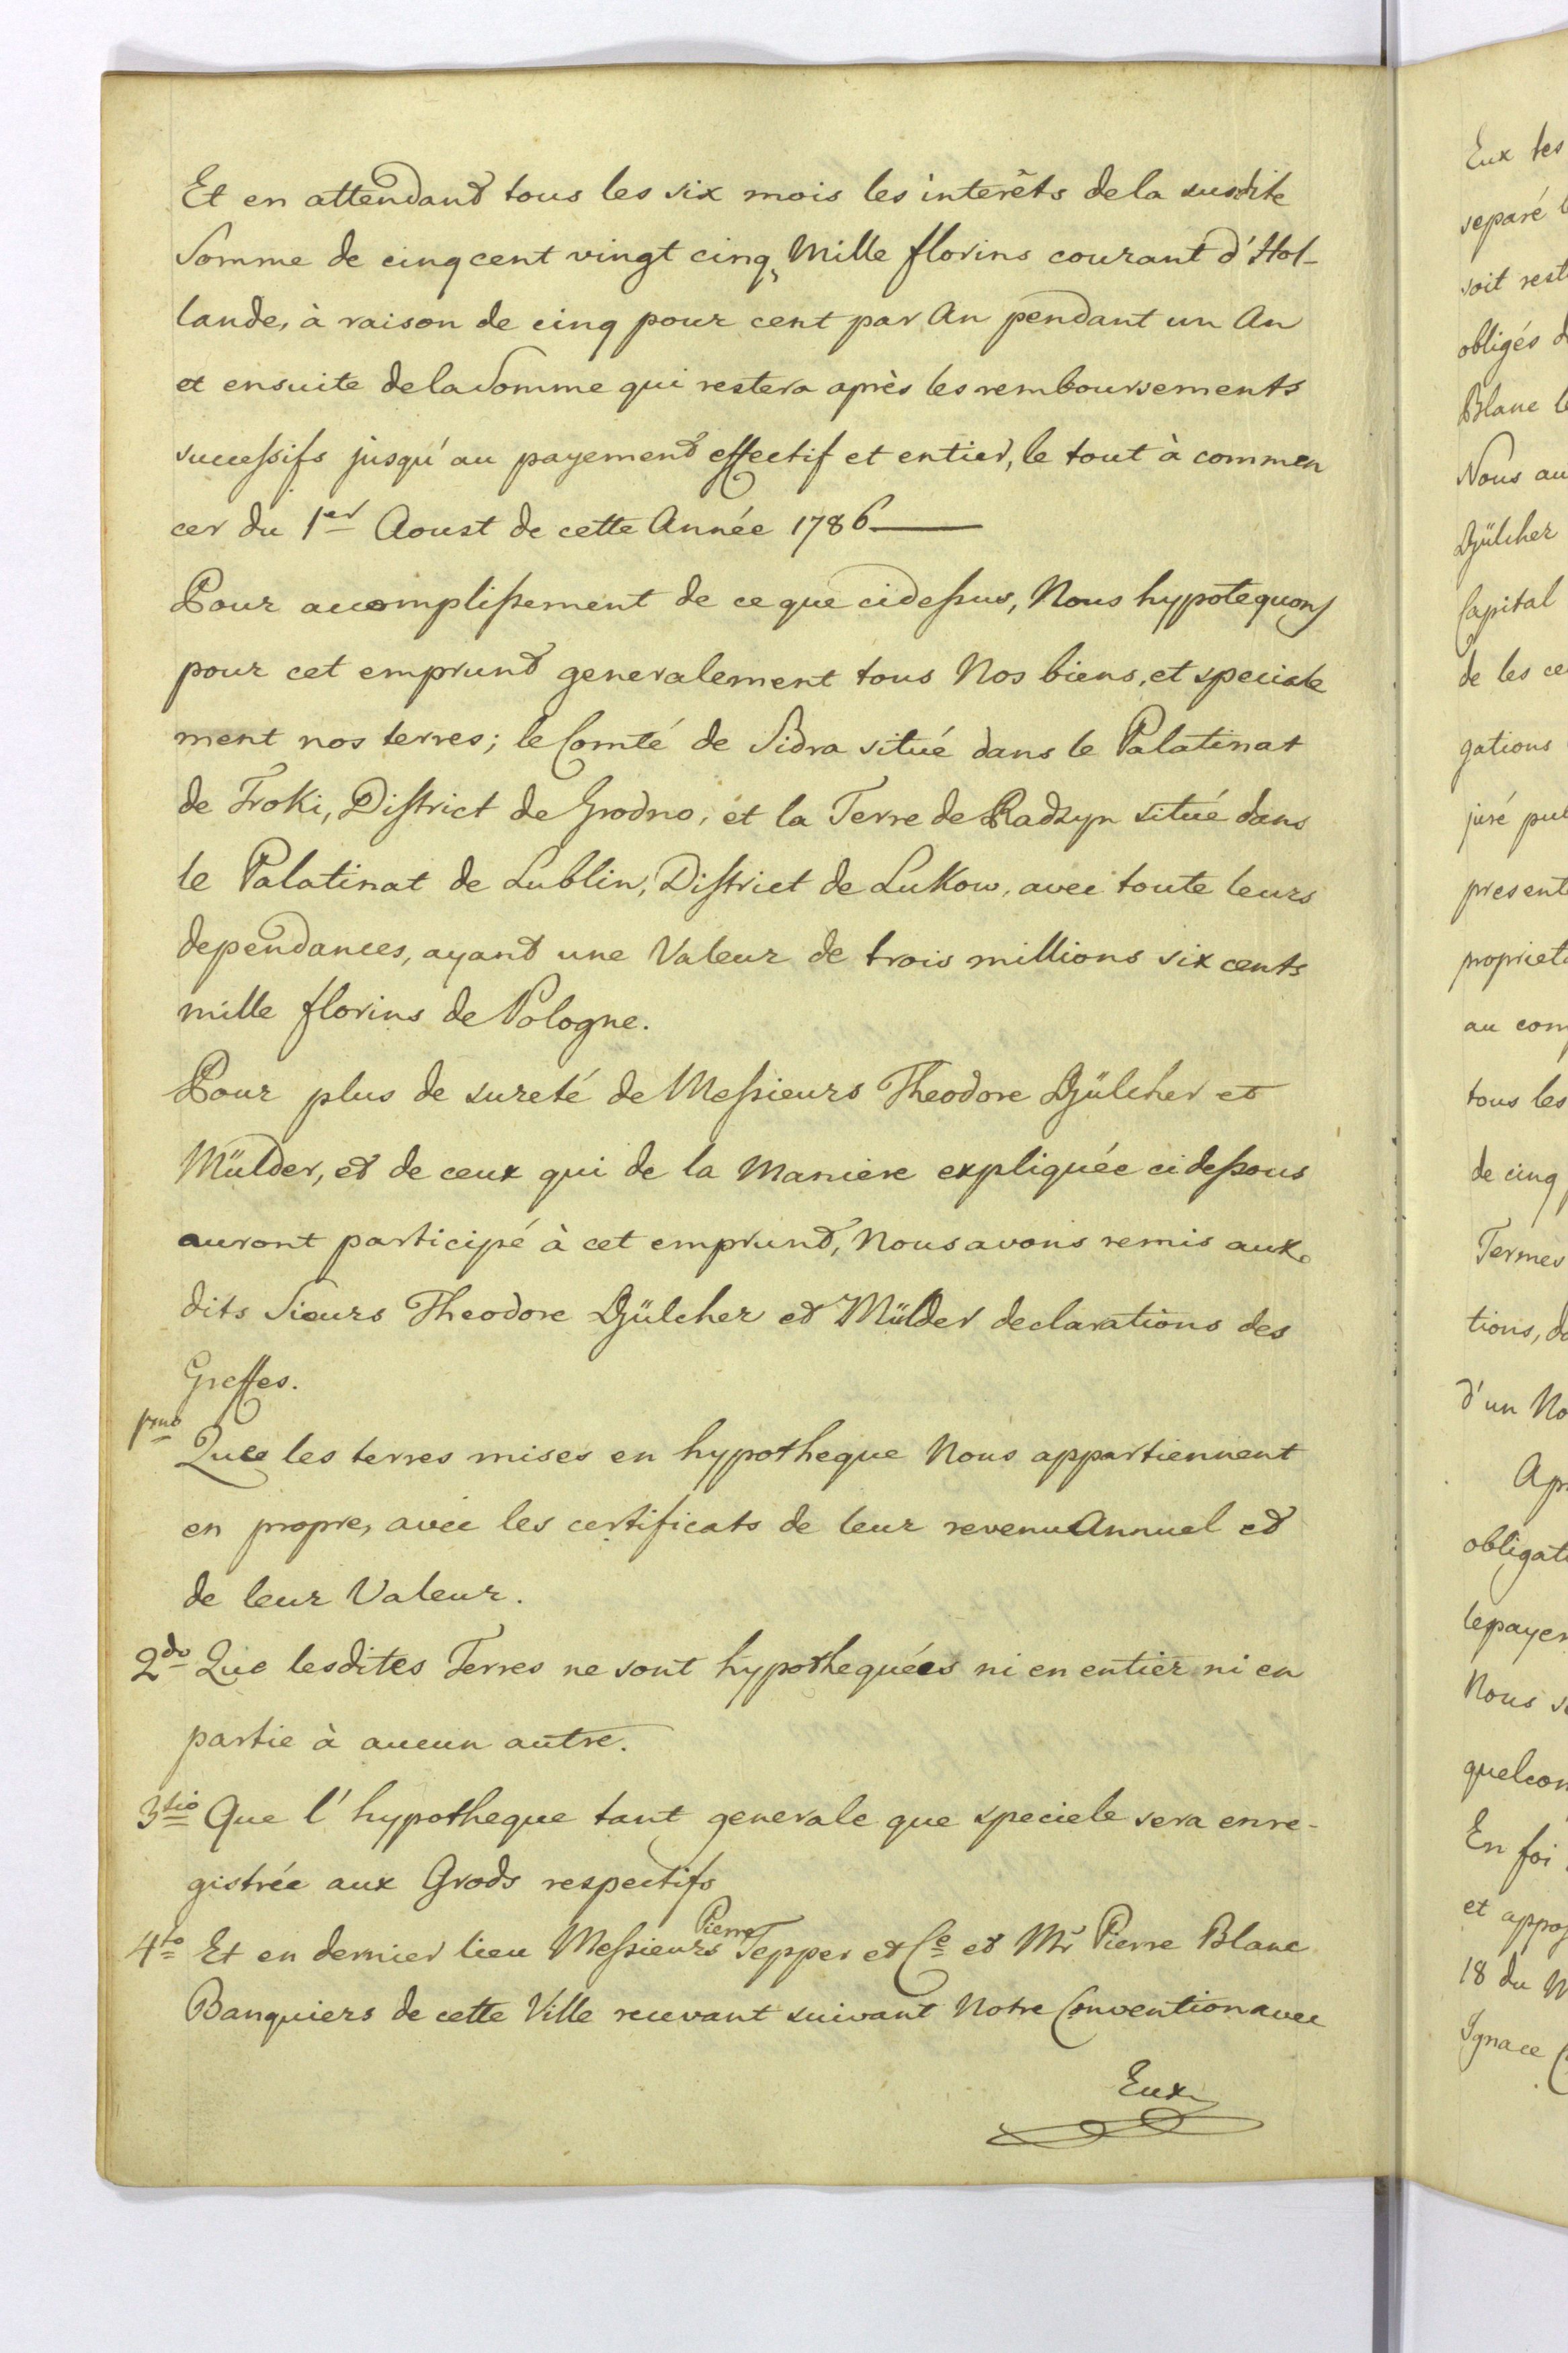 Et en attendant tous les six mois les interêts de la susdite
Somme de cinq cent vingt cinq Mille florins courant d'Hol-
lande, à raison de cinq pour cent par An pendant un An
et ensuite de la Somme qui restera après les remboursements
successifs jusqu'au payement effectif et entier, le tout à commen
cer du 1er Aoust de cette Année 1786
Pour accomplissement de ce que cidessus, Nous hypotequons
pour cet emprunt generalement tous Nos biens, et speciale
ment nos terres; le Comté de Sidra situé dans le Palatinat
de Troki, District de Grodno, et la Terre de Radzyn situé dans
le Palatinat de Lublin, District de Lukow, avec toute leurs
dependances, ayant une Valeur de trois millions six cents
mille florins de Pologne.
Pour plus de sureté de Messieurs Theodore Gülcher et
Mülder, et de ceux qui de la Maniere expliquée cidessous
auront participé à cet emprunt, Nous avons remis aux
dits Sieurs Theodore Gülcher et Mülder declarations des
Greffes.
pmo Que les terres mises en hypotheque Nous appartiennent
en propre, avec les certificats de leur revenu Annuel et
de leur Valeur.
2do Que lesdites Terres ne sont hypothequées ni en entier ni en
partie à aucun autre.
3tio Que l'hypotheque tant generale que speciele sera enre-
gistrée aux Grods respectifs
4to Et en dernier lieu Messieurs Pierre Tepper et Ce et Mr Pierre Blanc
Banquiers de cette Ville recevant suivant Notre Convention avec
Eux
Eux les
separé
soit rest
obligés
Blanc
Nous au
Gülcher
Capital
de les ce
gations
juré pub
present
propriet
au com
tous les
de cinq
Termes
tions, do
d'un No
Apr
obligati
le payem
Nous
quelcon
En foi
et appos
18 du M
Ignace